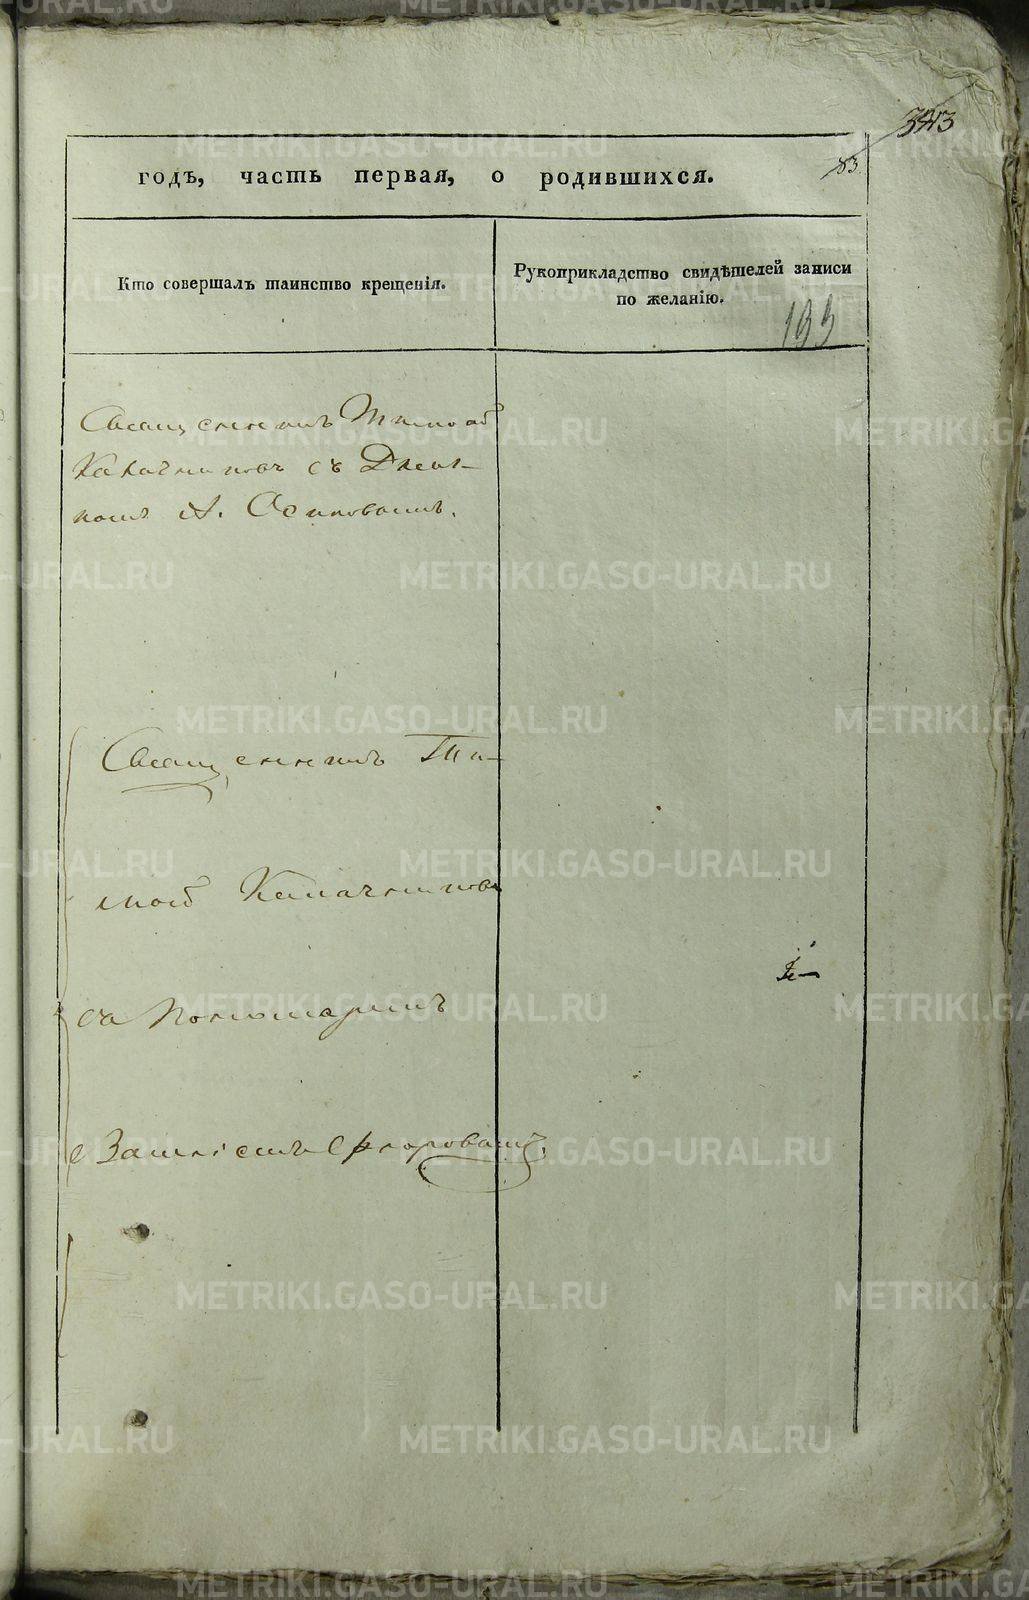 343
83
годъ, часть первая, о родившихся.
Кто совершалъ таинство крещенія.
Рукоприкладство свидѣтелей записи
по желанію.
193
Священникъ Тимоѳей
Калачниковъ съ Дьяч-
комъ А. Осиповымъ.
Священникъ Ти-
моѳей Калачниковъ
съ Пономаремъ
METRIKI.GASO-URAL.RU